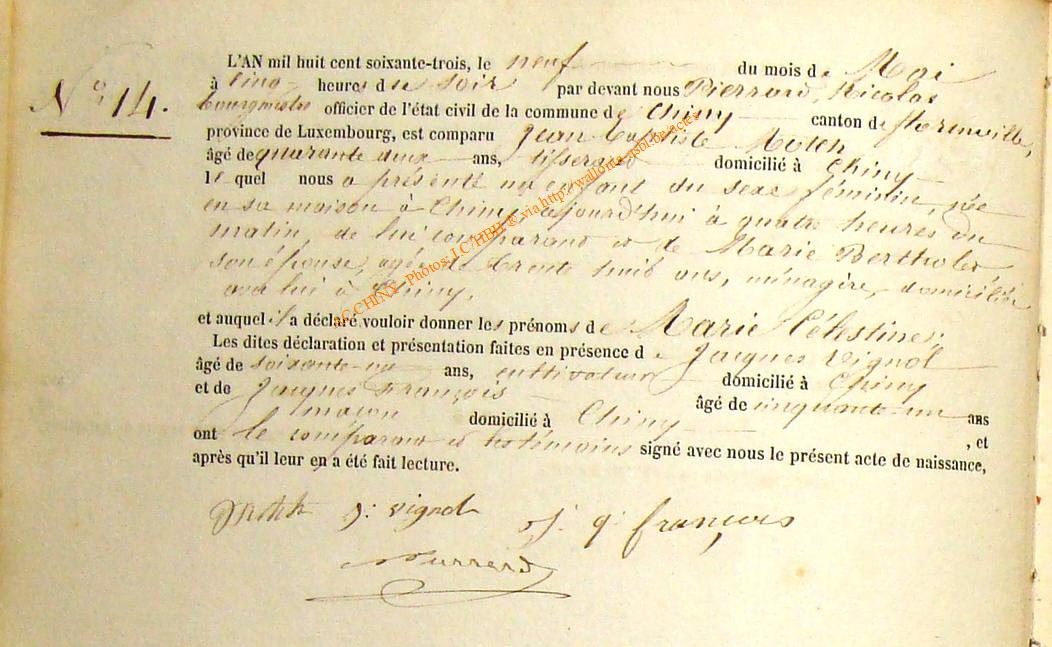 N° 14.
L'AN mil huit cent soixante-trois, le neuf du mois de Mai
à cinq heures du soir par devant nous Pierrard, Nicolas
bourgmestre officier de l'état civil de la commune de Chiny canton de florenville,
province de Luxembourg, est comparu Jean Baptiste
âgé de quarante deux ans, tisserand domicilié à Chiny
le quel nous a présenté un enfant du sexe féminin, née
en sa maison à Chiny, aujourd'hui à quatre heures du
matin, de lui comparant et de Marie Bertholet
son épouse, agée de trente huit ans, ménagère, domiciliée
avec lui à Chiny,
et auquel il a déclaré vouloir donner les prénoms de Marie Célestine;
Les dites déclaration et présentation faites en présence de Jacques Vignol
âgé de soixante-un ans, cultivateur domicilié à Chiny
et de Jacques François âgé de cinquante-un ans
maçon domicilié à Chiny , et
ont le comparant et les témoins signé avec nous le présent acte de naissance,
après qu'il leur en a été fait lecture.
j: vignol j. q. françois
Pierrard
AC CHINY Photos: J.C/HBH ® via http://wallonie-asbl-be/actes